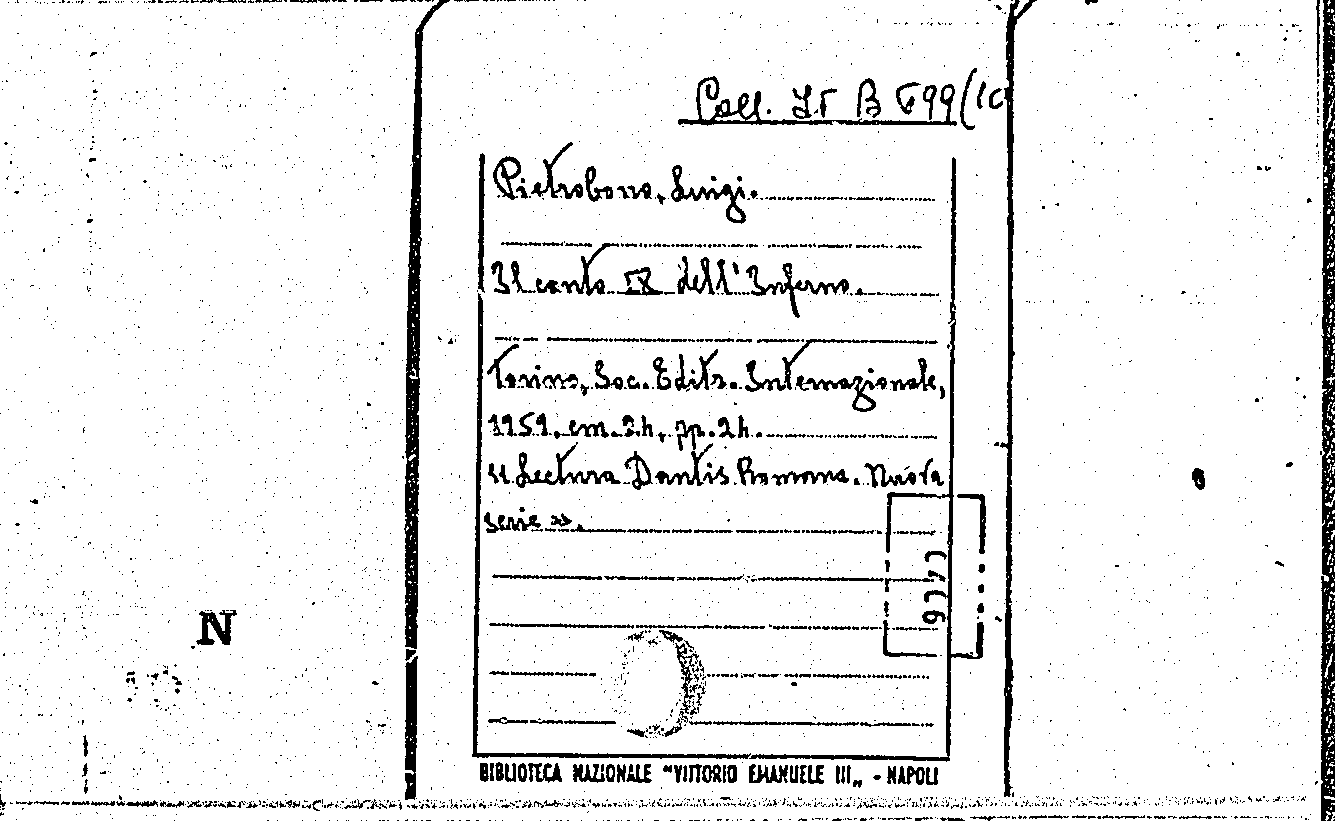 Coll. LF B 699/(10
Pietrobono, Luigi.
Il canto IX dell'Inferno.
Torino, Soc. Editr. Internazionale,
1959, cm. 24, pp. 24.
« Lectura Dantis Romana. Nuova
serie ».
N
BIBLIOTECA NAZIONALE "VITTORIO EMANUELE III„ - NAPOLI